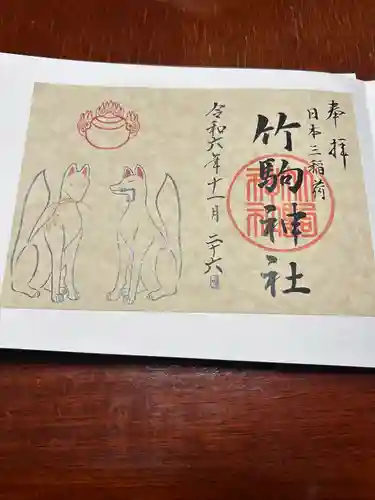 奉拝
日本三稲荷
竹駒神社
令和六年十一月二十六日